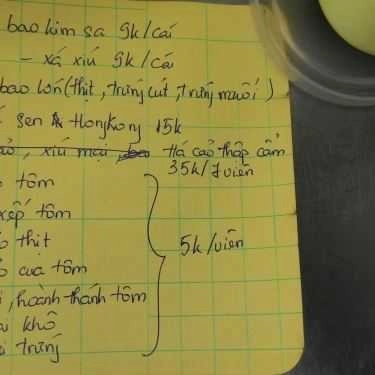 bao kim sa 9k/cái
- xá xíu 9k/cái
bao lớn (thịt, trứng cút, trứng muối)
sen Hongkong 15k
xíu mại Há cảo thập cẩm
35k/7viên
tôm
xếp tôm
thịt
cua tôm
5k/viên
, hoành thánh tôm
khô
trứng